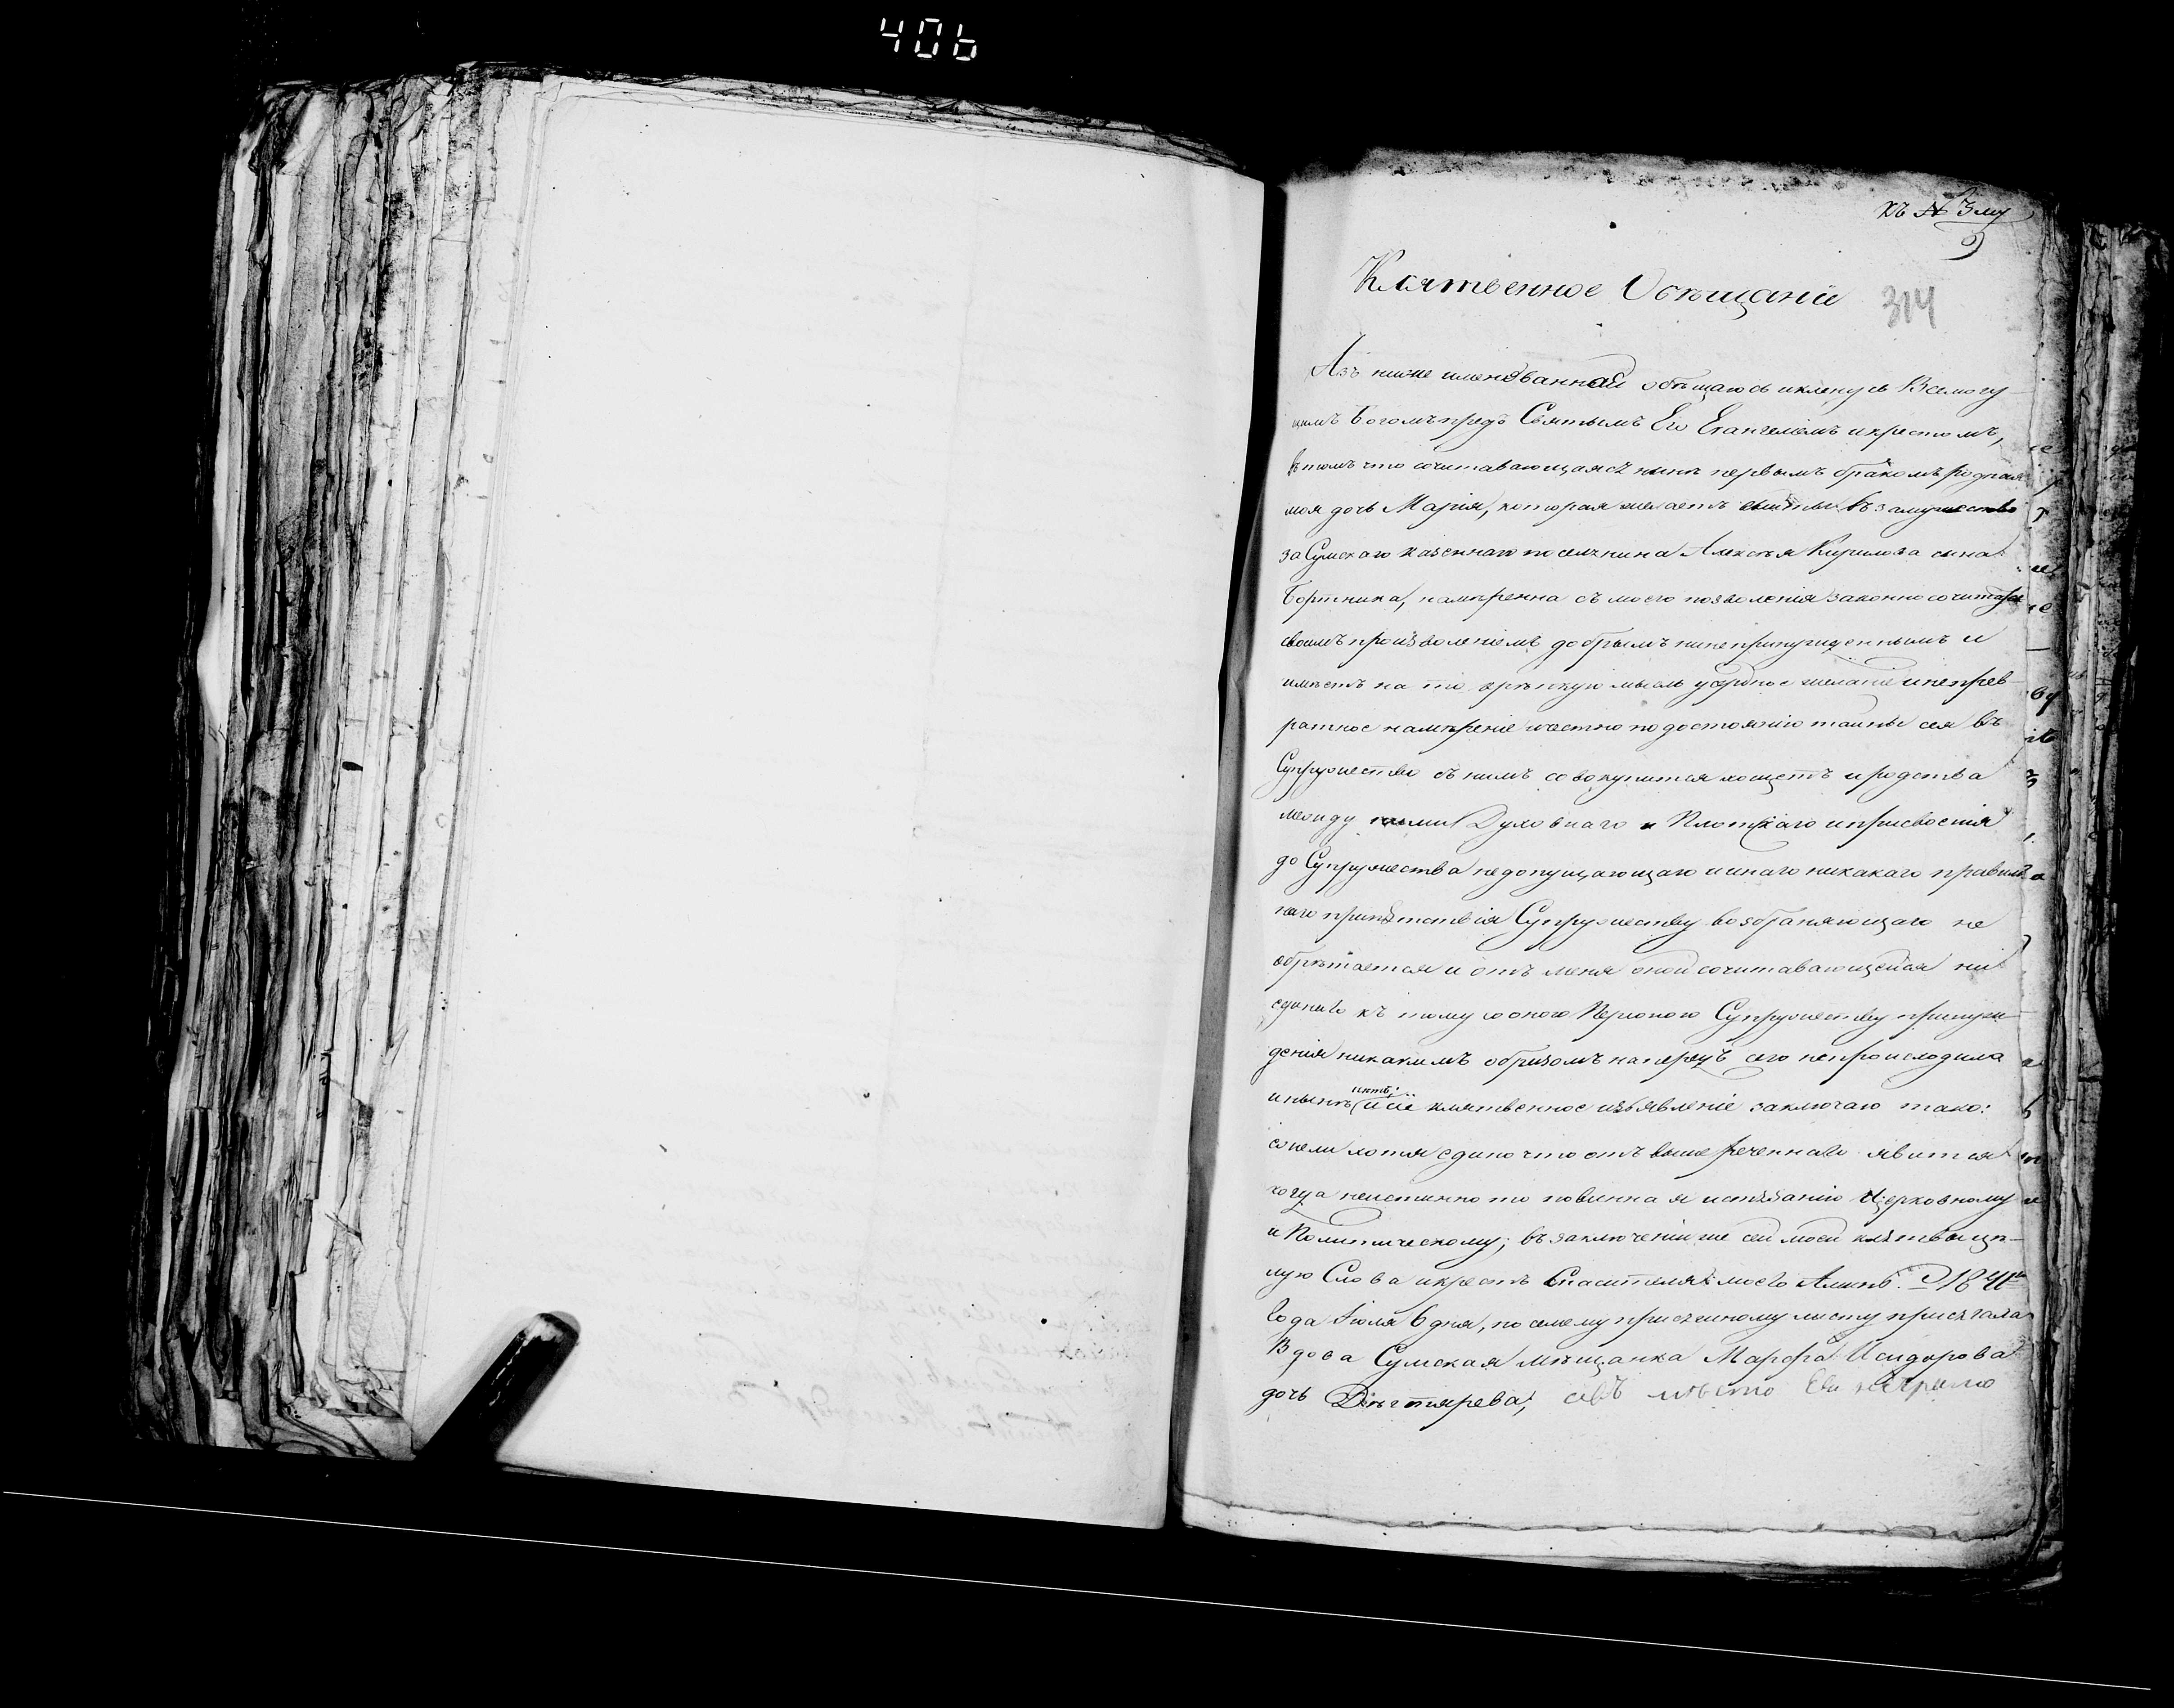 406
къ № 3му
9
Клятвенное Обѣщаніе
314
Азъ ниже именованная обѣщаюсь и кленусь Всемогу-
щимъ Богомъ предъ Святымъ Его Евангеліемъ и крестомъ,
въ томъ что сочитавающаяся нынѣ первымъ бракомъ родная
моя дочь Марія, которая желаетъ въ замужество
за Сумскаго казеннаго поселянина Алексѣя Кирилова сына
Бортника, намѣренна съ моего позволенія законно сочитатся
своимъ произволеніемъ добрымъ и непринужденнымъ и
имѣетъ на то крѣпкую мысль усердное желаніе и неправ-
ратное намѣреніе и честно по достоянію тайны сея въ
Супружество съ нимъ совокупится хощетъ и родства
между ними Духовнаго и Плотскаго и присвоенія
до Супружества недопущающаго и инаго никакаго правиль-
наго припятствія Супружеству возбраняющаго не
обрѣтается и отъ меня оной сочитавающейся ни
единаго къ тому Супружеству принуж-
денія никакимъ образомъ напередъ сего непроисходила
и нынѣ нѣтъ; и сіе клятвенное извявленіе заключаю тако:
если хотя едино что отъ выше реченнаго явится
когда неистинно то повинна я истязанію Церковному
и Политическому; въ заключеніи же сей моей клятвы цѣ-
лую Слова и крестъ Спасителя моего Аминь. 1841
года Іюля 6 дня, по семему присяжному листу присягала
Вдова Сумская мѣщанка Марфа Исидорова
дочь Дѣгтярева, а въ мѣсто Ея неграмо